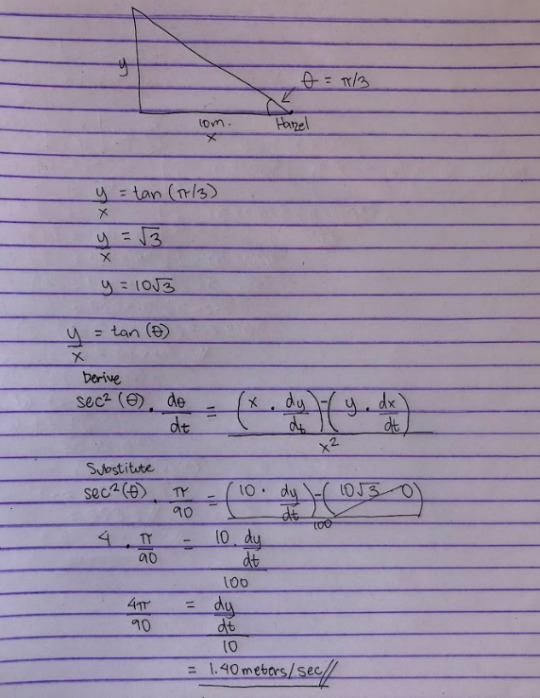 y
θ = π/3
10m. Hazel
x
y/x = tan (π/3)
y/x = √3
y = 10√3
y/x = tan (θ)
Derive
sec² (θ) · dθ/dt = ((x · dy/dt) - (y · dx/dt)) / x²
Substitute
sec² (θ) · π/90 = ((10 · dy/dt) - (10√3 0)) / 100
4 · π/90 = (10 · dy/dt) / 100
4π/90 = (dy/dt) / 10
= 1.40 meters/sec//